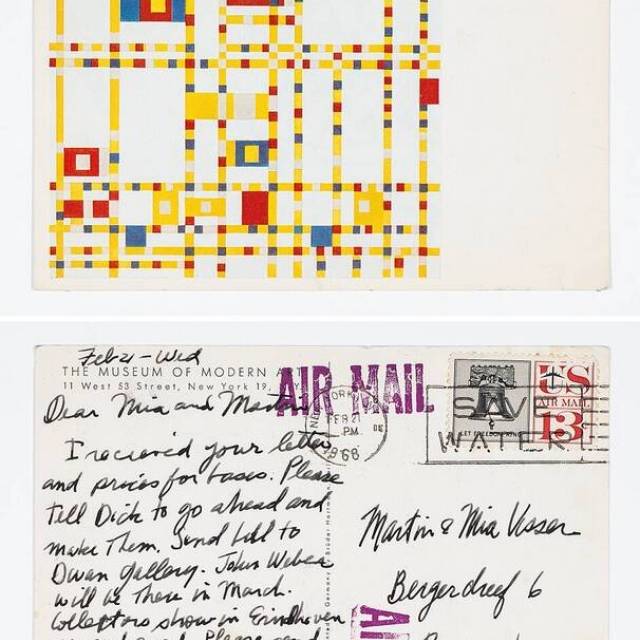 Feb 21 - Wed
THE MUSEUM OF MODERN ART
11 West 53 Street, New York 19, N.Y.
AIR MAIL
FEB 21
PM
1968
SAVE
WATER
US
AIR MAIL
13¢
Dear Mia and Martin
I received your letter
and prices for bases. Please
tell Dick to go ahead and
make them. Send bill to
Dwan Gallery. John Weber
will be there in March.
Collectors show in Eindhoven
Martin & Mia Visser
Bergerdreef 6